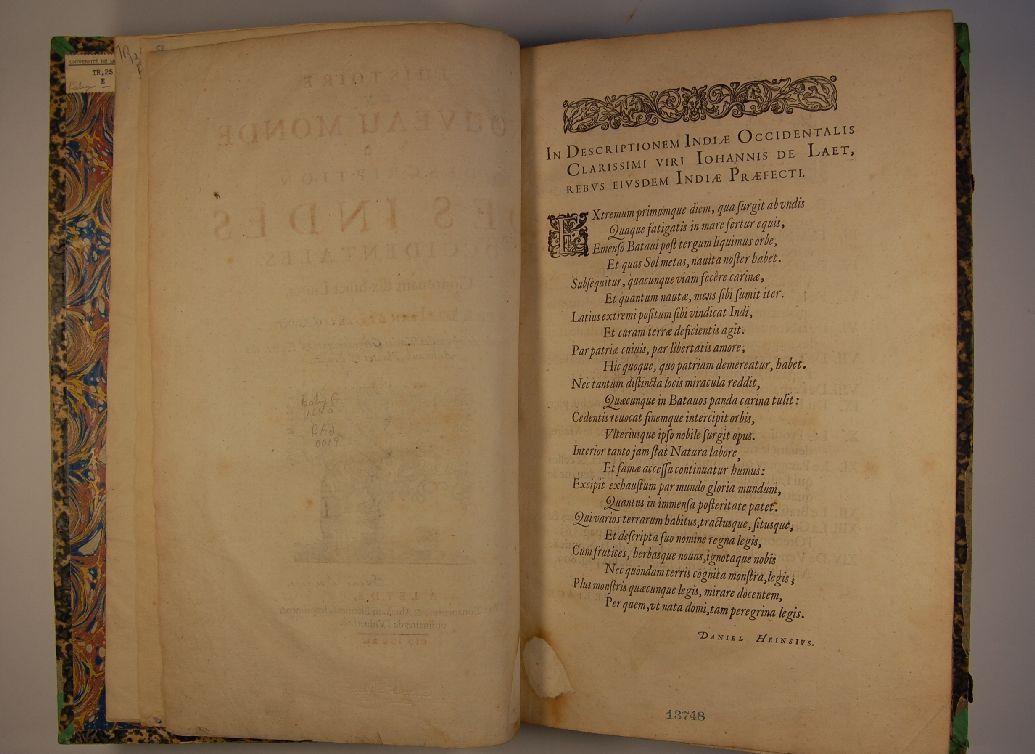 TR.25
E
IN DESCRIPTIONEM INDIÆ OCCIDENTALIS
CLARISSIMI VIRI IOHANNIS DE LAET,
REBVS EIVSDEM INDIÆ PRÆFECTI.
EXtremum primumque diem, qua surgit ab vndis
Quaque fatigatis in mare fertur equis,
Emenso Bataui post tergum liquimus orbe,
Et quas Sol metas, nauita noster habet.
Subsequitur, quacunque viam fecêre carinæ,
Et quantum nautæ, mens sibi sumit iter.
Latius extremi positum sibi vindicat Indi,
Et curam terræ deficientis agit.
Par patriæ ciuis, par libertatis amore,
Hic quoque, quo patriam demereatur, habet.
Nec tantum distincta locis miracula reddit,
Quæcunque in Batauos panda carina tulit:
Cedentis reuocat finemque intercipit orbis,
Vlteriusque ipso nobile surgit opus.
Interior tanto jam stat Natura labore,
Et famæ accessa continuatur humus:
Excipit exhaustum par mundo gloria mundum,
Quantus in immensa posteritate patet.
Qui varios terrarum habitus, tractusque, situsque,
Et descripta suo nomine regna legis,
Cum frutices, herbasque nouas, ignotaque nobis
Nec quondam terris cognita monstra, legis;
Plus monstris quæcunque legis, mirare docentem,
Per quem, vt nata domi, tam peregrina legis.
DANIEL HEINSIVS.
13748